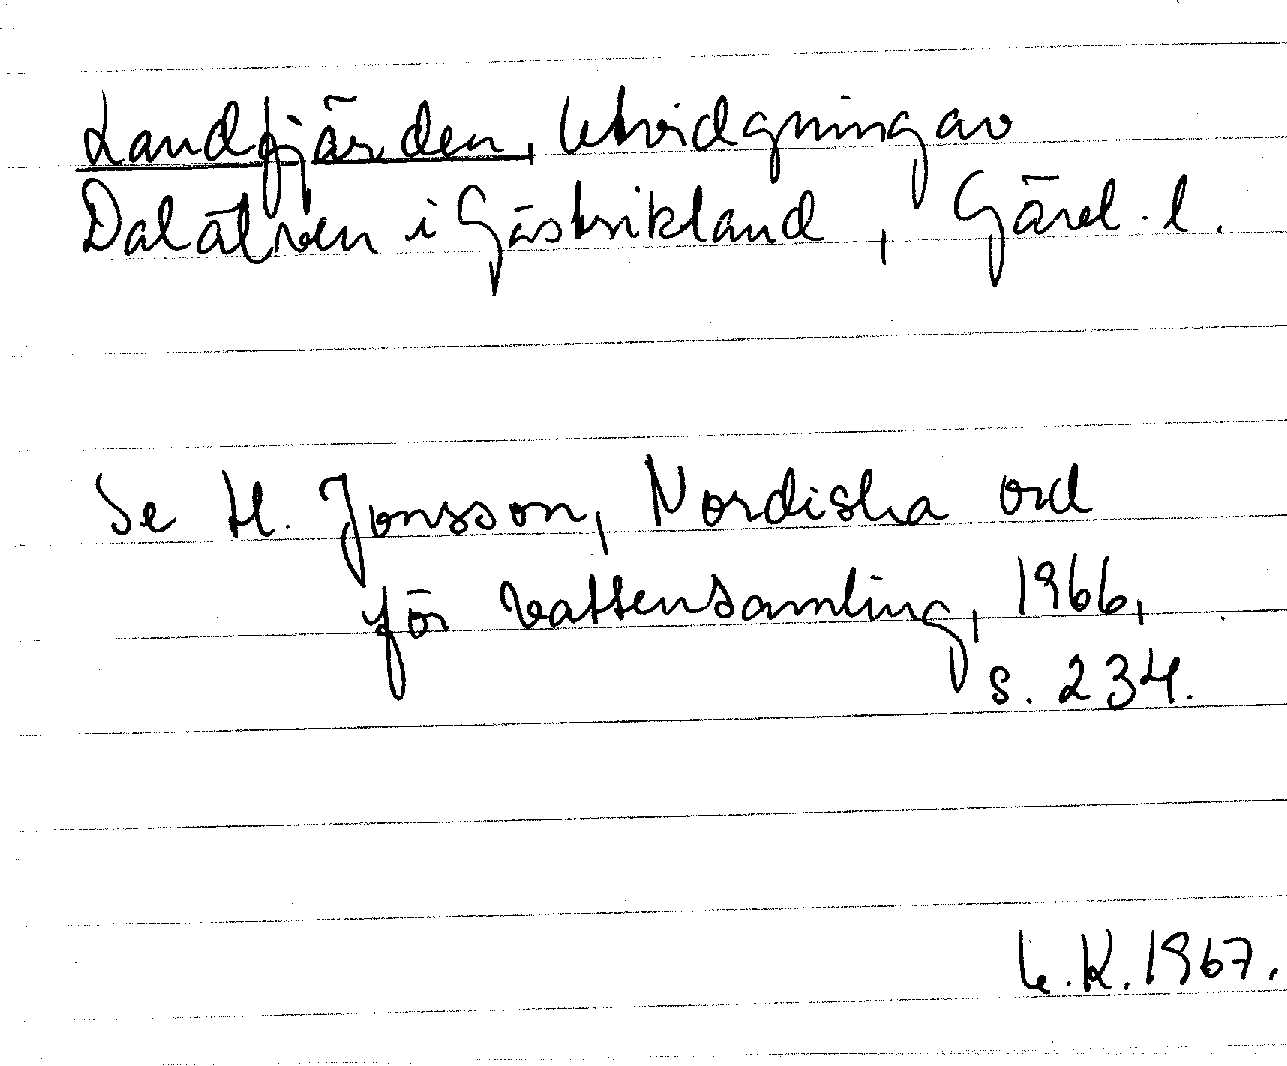 Landfjärden, Utvidgning av
Dalälven i Gästrikland, Gävl. l.
Se H. Jonsson, Nordiska ord
för vattensamling, 1966,
s. 234.
U.K. 1967.